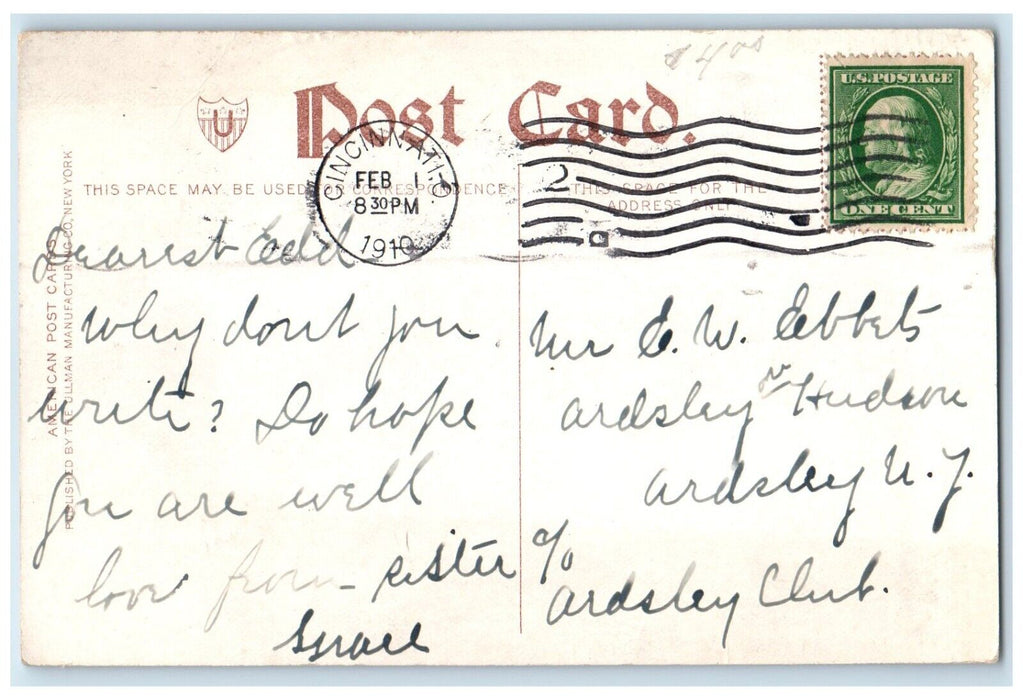 $4.00
Post Card.
U.S. POSTAGE
ONE CENT
U
CINCINNATI, O.
FEB 1
8 30 PM
1910
2
THIS SPACE MAY BE USED FOR CORRESPONDENCE
THIS SPACE FOR THE
ADDRESS ONLY
AMERICAN POST CARDS
PUBLISHED BY THE ULLMAN MANUFACTURING CO, NEW YORK
Dearest Edd
Why dont you
write? Do hope
you are well
love from - sister
Mr E. W. Ebbets
Ardsley on Hudson
Ardsley N.Y.
c/o
Ardsley Club.